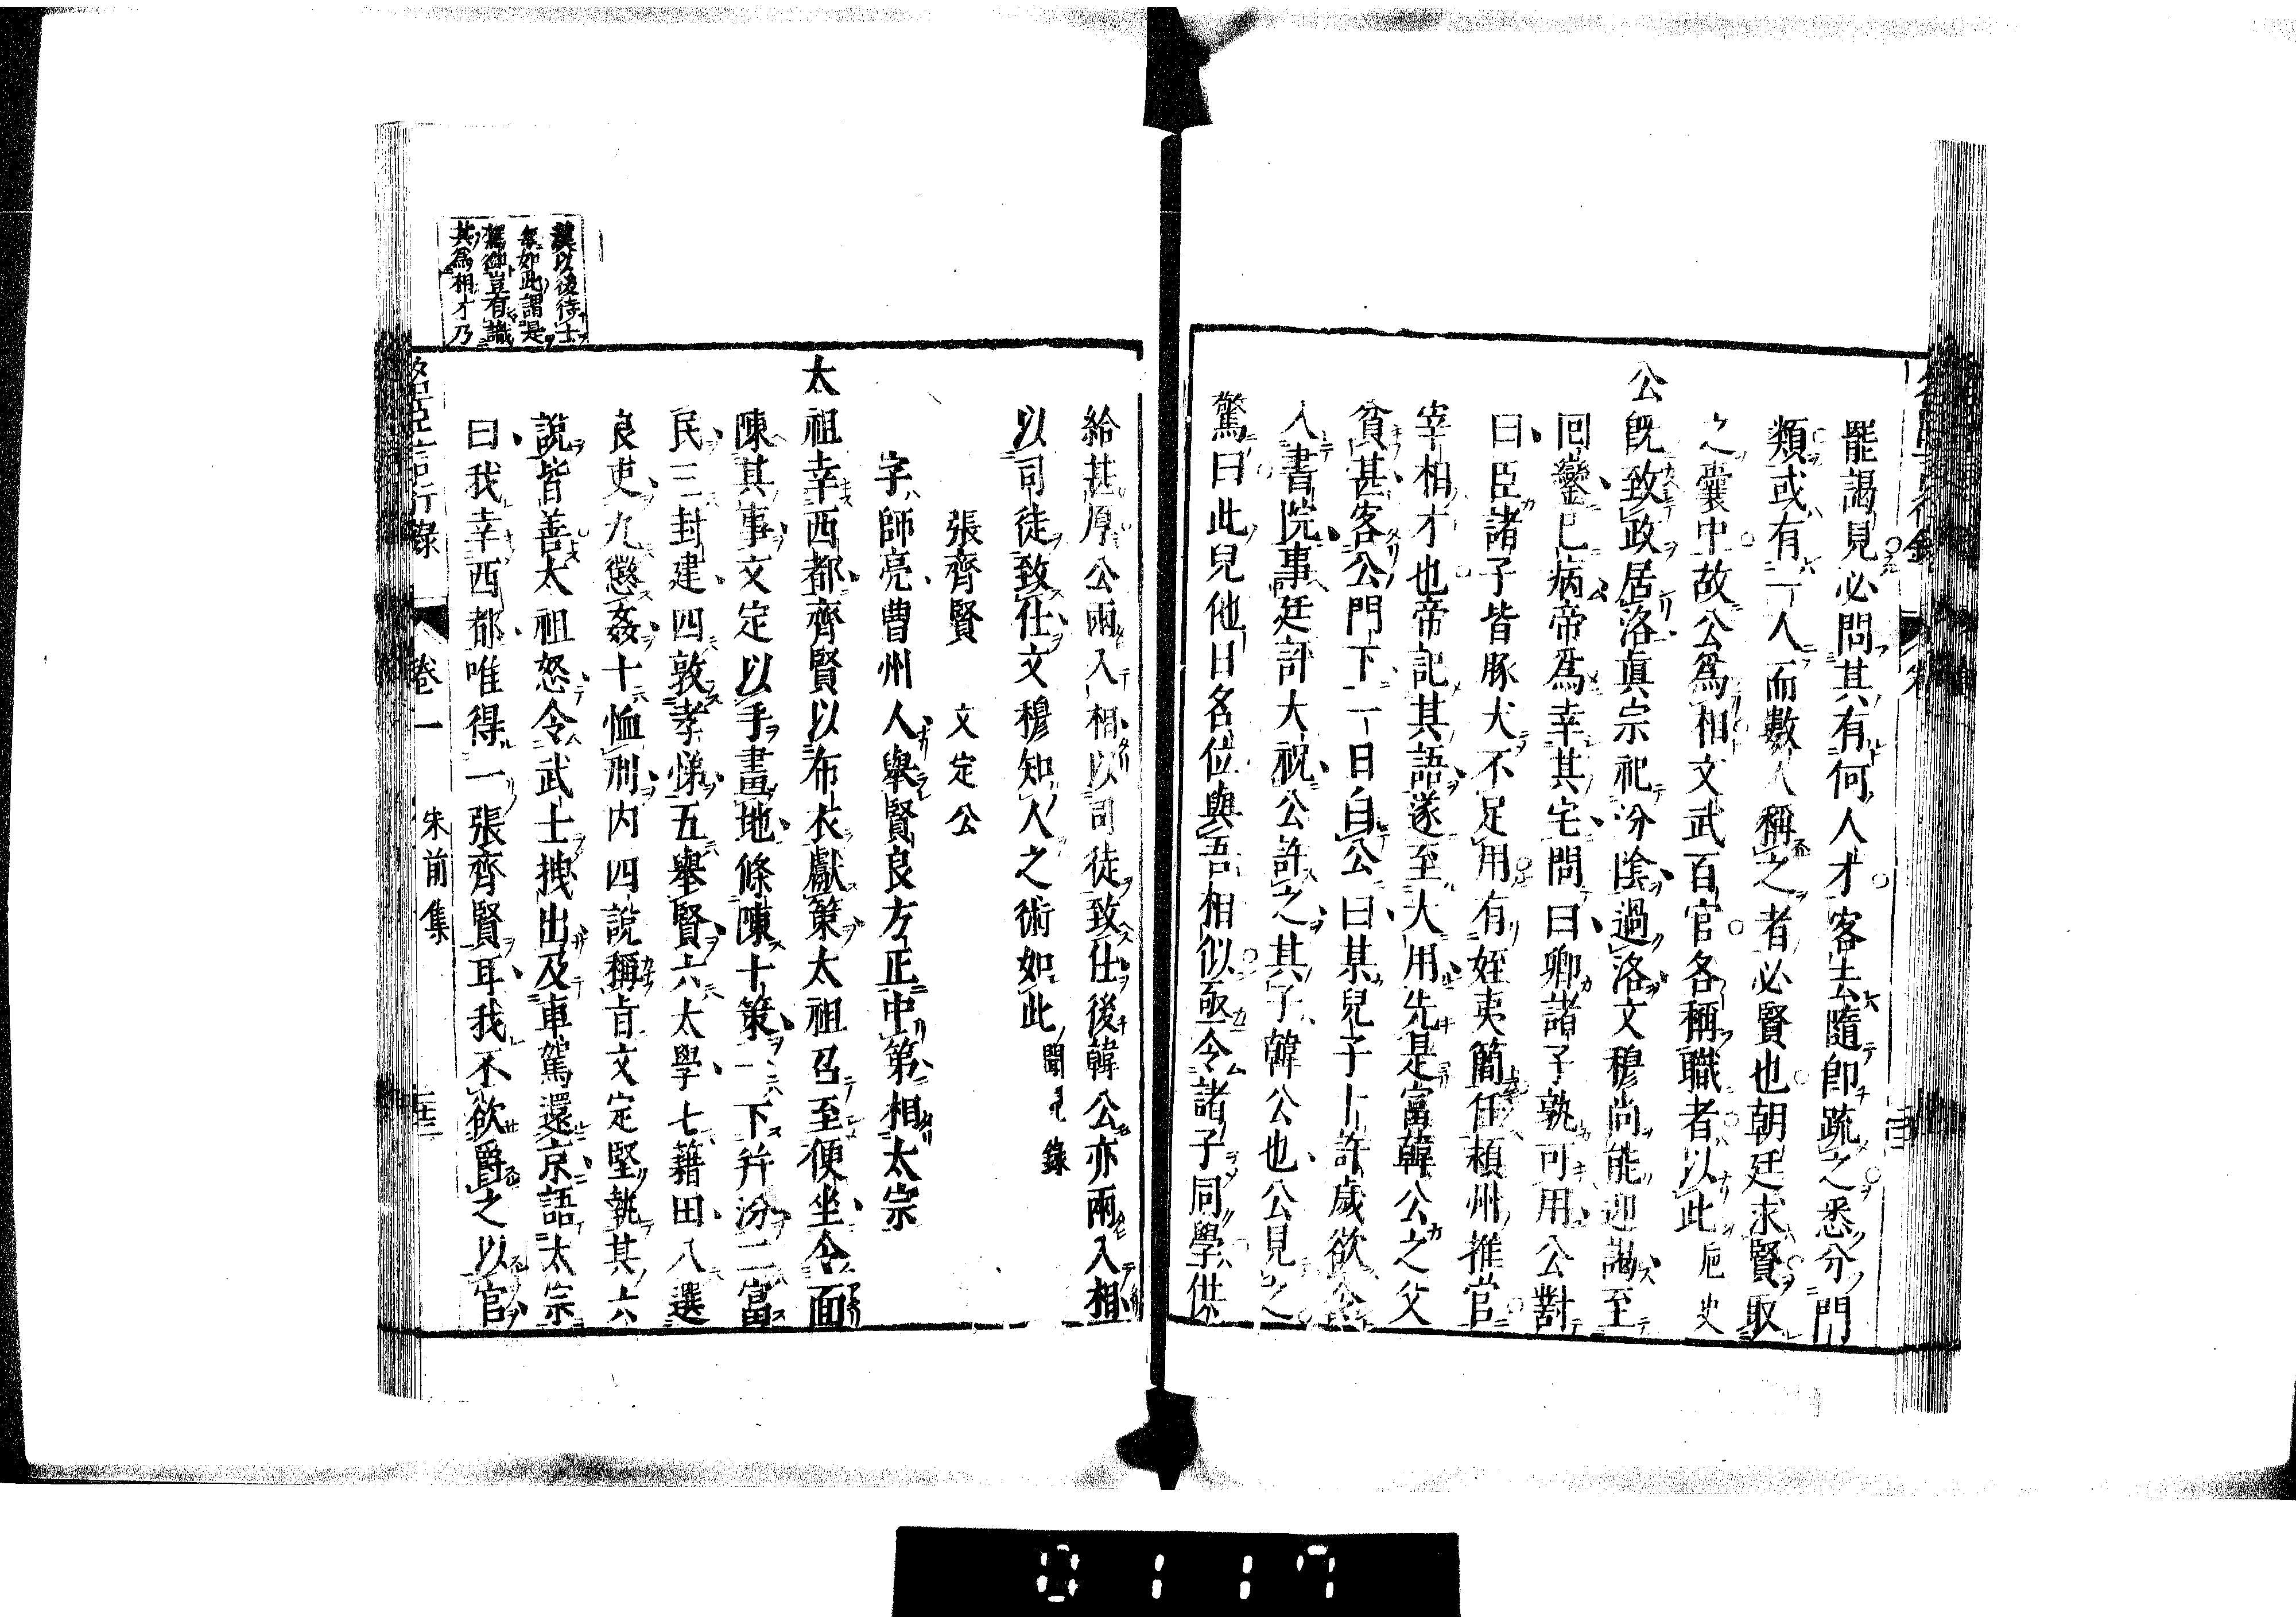 罷謁見必問其有何人才客去隨卽疏之悉分門
類或有一人而數人稱之者必賢也朝廷求賢取
之囊中故公爲相文武百官各稱職者以此巵史
公旣致政居洛眞宗祀汾陰過洛文穆尚能迎謁至
回鑾已病帝爲幸其宅問曰卿諸子孰可用公對
曰臣諸子皆豚犬不足用有姪夷簡任頴州推官
宰相才也帝記其語遂至大用先是富韓公之父
貧甚客公門下一日白公曰某兒子十許歲欲令
入書院事廷評大祝公許之其子韓公也公見之
驚曰此兒他日名位與吾相似亟令諸子同學供
給甚厚公兩入相以司徒致仕後韓公亦兩入相
以司徒致仕文穆知人之術如此聞見錄
張齊賢 文定公
字師亮曹州人舉賢良方正中第相太宗
太祖幸西都齊賢以布衣獻策太祖召至便坐令面
陳其事文定以手畫地條陳十策一下幷汾二富
民三封建四敦孝悌五舉賢六太學七籍田八選
良吏九懲姦十恤刑内四說稱旨文定堅執其六
說皆善太祖怒令武士拽出及車駕還京語太宗
曰我幸西都唯得一張齊賢耳我不欲爵之以官
漢以後待士
每如此謂是
駕御豈有識
其爲相才乃
言行錄 卷一 宋前集
0117